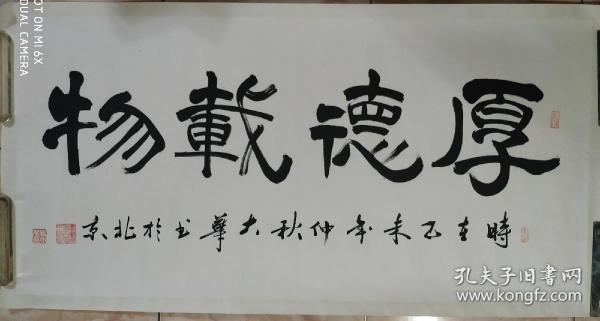 厚德載物
時在乙未年仲秋大華书於北京
SHOT ON MI 6X
DUAL CAMERA
孔夫子旧書网
www.kongfz.com